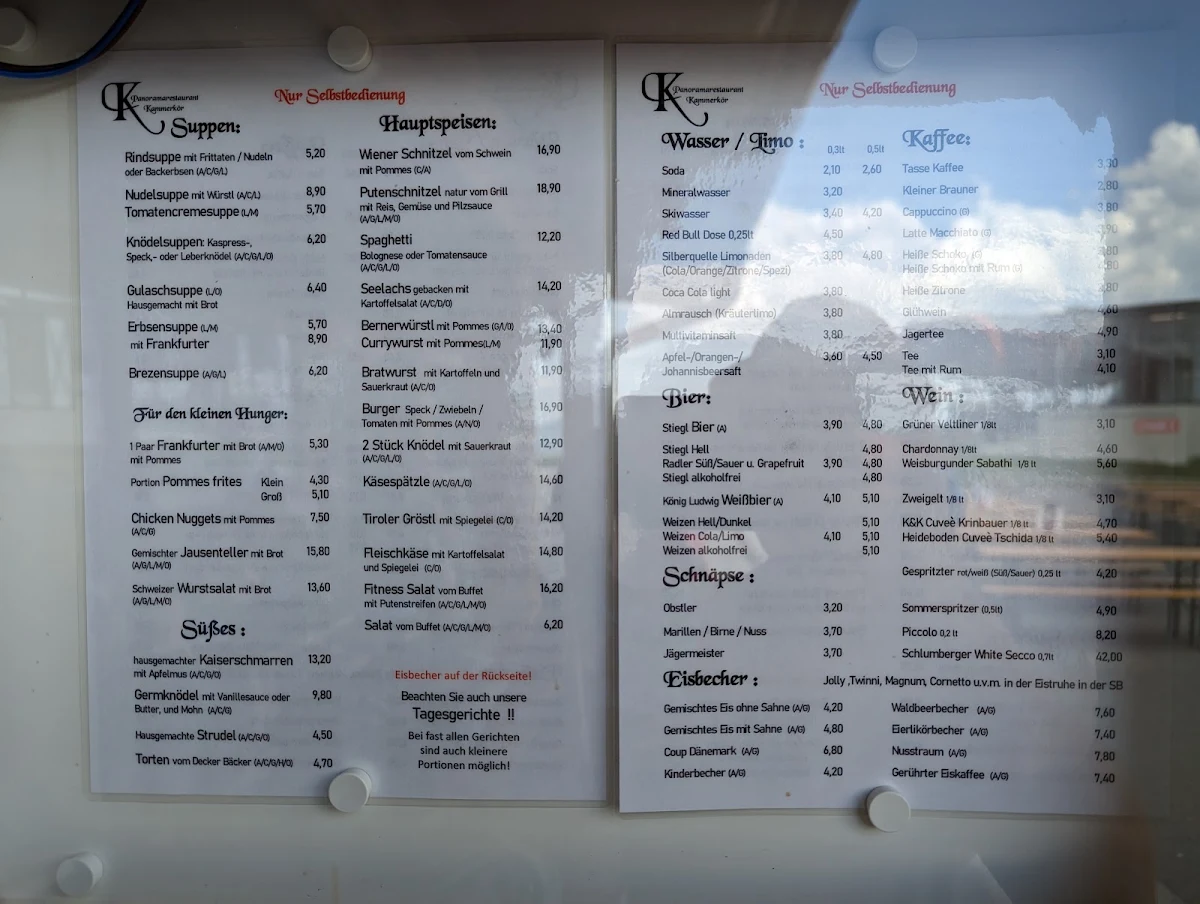 K Panoramarestaurant
Kammerkör
Nur Selbstbedienung
Suppen:
Rindsuppe mit Frittaten / Nudeln 5,20
oder Backerbsen (A/C/G/L)
Nudelsuppe mit Würstl (A/C/L) 8,90
Tomatencremesuppe (L/M) 5,70
Knödelsuppen: Kaspress-, 6,20
Speck,- oder Leberknödel (A/C/G/L/O)
Gulaschsuppe (L/O) 6,40
Hausgemacht mit Brot
Erbsensuppe (L/M) 5,70
mit Frankfurter 8,90
Brezensuppe (A/G/L) 6,20
Für den kleinen Hunger:
1 Paar Frankfurter mit Brot (A/M/O) 5,30
mit Pommes
Portion Pommes frites Klein 4,30
Groß 5,10
Chicken Nuggets mit Pommes 7,50
(A/C/G)
Gemischter Jausenteller mit Brot 15,80
(A/G/L/M/O)
Schweizer Wurstsalat mit Brot 13,60
(A/G/L/M/O)
Süßes :
hausgemachter Kaiserschmarren 13,20
mit Apfelmus (A/C/G/O)
Germknödel mit Vanillesauce oder 9,80
Butter, und Mohn (A/C/G)
Hausgemachte Strudel (A/C/G/O) 4,50
Torten vom Decker Bäcker (A/C/G/H/O) 4,70
Hauptspeisen:
Wiener Schnitzel vom Schwein 16,90
mit Pommes (C/A)
Putenschnitzel natur vom Grill 18,90
mit Reis, Gemüse und Pilzsauce
(A/G/L/M/O)
Spaghetti 12,20
Bolognese oder Tomatensauce
(A/C/G/L/O)
Seelachs gebacken mit 14,20
Kartoffelsalat (A/C/D/O)
Bernerwürstl mit Pommes (G/L/O) 13,40
Currywurst mit Pommes(L/M) 11,90
Bratwurst mit Kartoffeln und 11,90
Sauerkraut (A/C/O)
Burger Speck / Zwiebeln / 16,90
Tomaten mit Pommes (A/N/O)
2 Stück Knödel mit Sauerkraut 12,90
(A/C/G/L/O)
Käsespätzle (A/C/G/L/O) 14,60
Tiroler Gröstl mit Spiegelei (C/O) 14,20
Fleischkäse mit Kartoffelsalat 14,80
und Spiegelei (C/O)
Fitness Salat vom Buffet 16,20
mit Putenstreifen (A/C/G/L/M/O)
Salat vom Buffet (A/C/G/L/M/O) 6,20
Eisbecher auf der Rückseite!
Beachten Sie auch unsere
Tagesgerichte !!
Bei fast allen Gerichten
sind auch kleinere
Portionen möglich!
K Panoramarestaurant
Kammerkör
Nur Selbstbedienung
Wasser / Limo : 0,3lt 0,5lt
Soda 2,10 2,60
Mineralwasser 3,20
Skiwasser 3,40 4,20
Red Bull Dose 0,25lt 4,50
Silberquelle Limonaden 3,80 4,80
(Cola/Orange/Zitrone/Spezi)
Coca Cola light 3,80
Almrausch (Kräuterlimo) 3,80
Multivitaminsaft 3,80
Apfel-/Orangen-/ 3,60 4,50
Johannisbeersaft
Kaffee:
Tasse Kaffee 3,30
Kleiner Brauner 2,80
Cappuccino (G) 3,80
Latte Macchiato (G)
Heiße Schoko (G)
Heiße Schoko mit Rum (G)
Heiße Zitrone
Glühwein 4,60
Jagertee 4,90
Tee 3,10
Tee mit Rum 4,10
Bier:
Stiegl Bier (A) 3,90 4,80
Stiegl Hell 4,80
Radler Süß/Sauer u. Grapefruit 3,90 4,80
Stiegl alkoholfrei 4,80
König Ludwig Weißbier (A) 4,10 5,10
Weizen Hell/Dunkel 5,10
Weizen Cola/Limo 4,10 5,10
Weizen alkoholfrei 5,10
Wein :
Grüner Veltliner 1/8lt 3,10
Chardonnay 1/8lt 4,60
Weisburgunder Sabathi 1/8 lt 5,60
Zweigelt 1/8 lt 3,10
K&K Cuveè Krinbauer 1/8 lt 4,70
Heideboden Cuveè Tschida 1/8 lt 5,40
Gespritzter rot/weiß (Süß/Sauer) 0,25 lt 4,20
Sommerspritzer (0,5lt) 4,90
Piccolo 0,2 lt 8,20
Schlumberger White Secco 0,7lt 42,00
Schnäpse :
Obstler 3,20
Marillen / Birne / Nuss 3,70
Jägermeister 3,70
Eisbecher : Jolly ,Twinni, Magnum, Cornetto u.v.m. in der Eistruhe in der SB
Gemischtes Eis ohne Sahne (A/G) 4,20
Gemischtes Eis mit Sahne (A/G) 4,80
Coup Dänemark (A/G) 6,80
Kinderbecher (A/G) 4,20
Waldbeerbecher (A/G) 7,60
Eierlikörbecher (A/G) 7,40
Nusstraum (A/G) 7,80
Gerührter Eiskaffee (A/G) 7,40